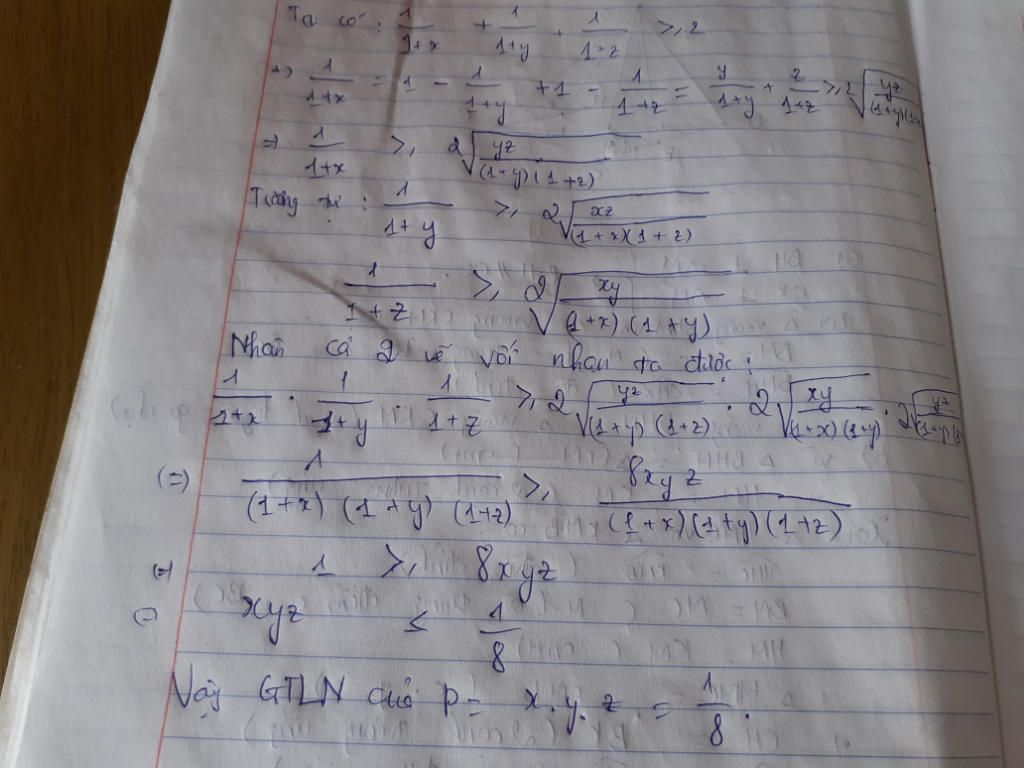 Ta có : 1/(1+x) + 1/(1+y) + 1/(1+z) ≥ 2
=> 1/(1+x) = 1 - 1/(1+y) + 1 - 1/(1+z) = y/(1+y) + z/(1+z) ≥ 2√(yz/((1+y)(1+
=> 1/(1+x) ≥ 2√(yz/((1+y)(1+z)))
Tương tự : 1/(1+y) ≥ 2√(xz/((1+x)(1+z)))
1/(1+z) ≥ 2√(xy/((1+x)(1+y)))
Nhân cả 2 vế với nhau ta được :
1/(1+x) . 1/(1+y) . 1/(1+z) ≥ 2√(yz/((1+y)(1+z))) . 2√(xy/((1+x)(1+y))) . 2√(yz/((1+y)(1
(=) 1/((1+x)(1+y)(1+z)) ≥ 8xyz/((1+x)(1+y)(1+z))
(=) 1 ≥ 8xyz
(=) xyz ≤ 1/8
Vậy GTLN của P = x.y.z = 1/8.